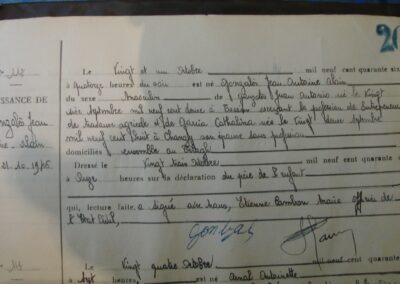 20
N° 118
Le Vingt et un Octobre mil neuf cent quarante six
à quatorze heures du soir est né Gonzalès Jean Antoine Alain
NAISSANCE DE
du sexe Masculin de Gonzalès Jean Antonio né le Vingt
Gonzalès Jean
sept Septembre mil neuf cent douze à exerçant la profession de Entrepreneur
Alain
de travaux agricole et de Garcia Cathalina née le Vingt deux Septembre
mil neuf cent huit à son épouse sans profession
21.10.1946
domiciliés ensemble au
Dressé le Vingt trois Octobre mil neuf cent quarante
à onze heures sur la déclaration du père de l'enfant
qui, lecture faite, a signé avec Nous, Etienne Maire officier de
l'Etat Civil,
N° 119
Le Vingt quatre Octobre mil neuf cent quarante
à sept heures, est né Antoinette